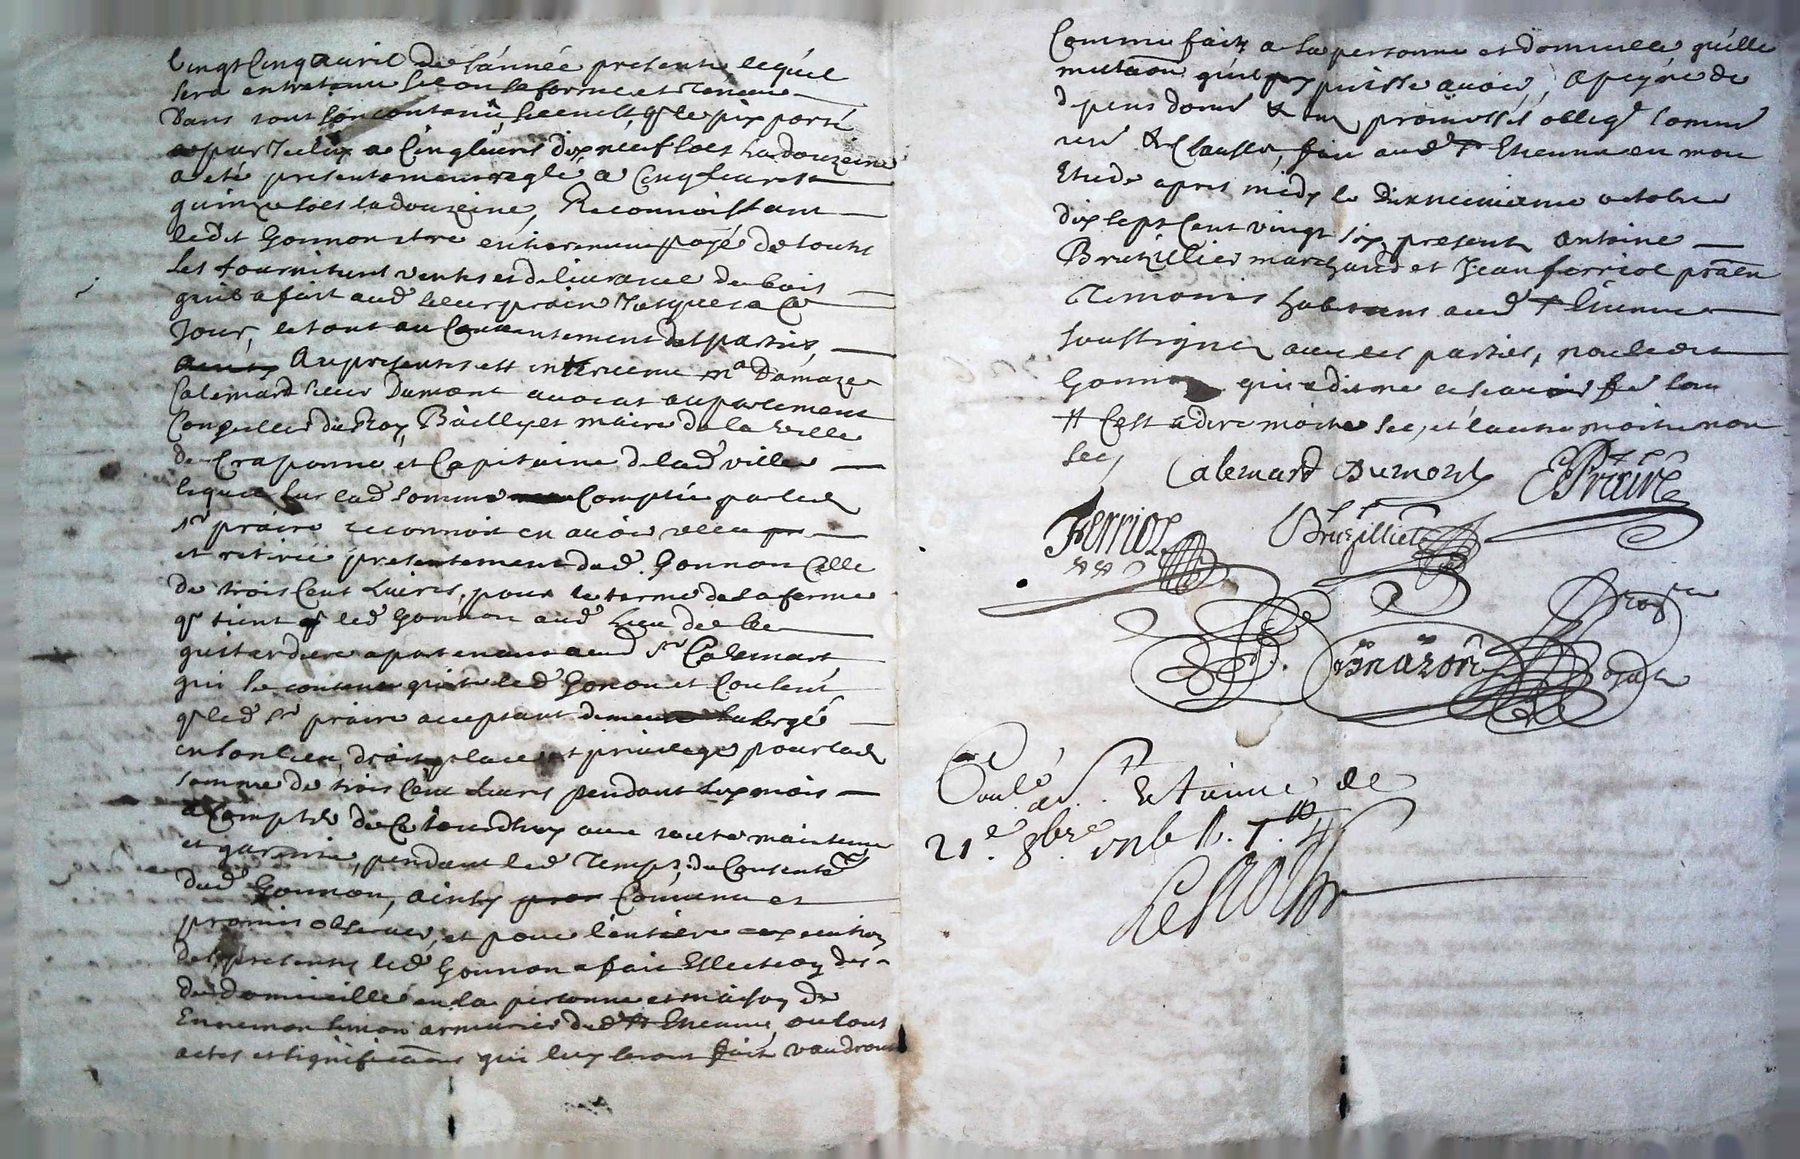 vingt cinq auril de l'année presente lequel
sera entretenu selon sa forme et teneur
dans tout son contenu, sceuf q̃ le pix porté
par Icelux a Cinq liures dix neuf sols la douzeine
a eté presentement reglé a Cinq liures
quinze sols la douzeine, Reconnoissant
ledit Gonnon etre entierement payé de toutes
les fournitures ventes et deliurance de bois
quil a fait aud sieur praire Jusques a Ce
Jour, le tout au Contentement des parties
Aux presentes est interuenu mᵉ Damaze
Calemard sieur Dumont auocat au parlement
Conseiller du Roy, Bailly et maire de la ville
de Craponne et Capitaine de lad ville
lequel sur lad somme Comptée par led
sʳ praire reconnoit en auoir receu
et retiré presentement dud. Gonnon Celle
de trois Cent Liures, pour le terme de la ferme
q̃ tient led Gonnon aud lieu de
apartenant aud Sʳ Calemart
qui se contente quitte led Gonon et Consent
q̃ led Sʳ praire acceptant demeure subrogé
en son lieu, droit place et priuilege pour lad
somme de trois Cent Liures pendant six mois
a Compter de Ce Jourdhuy auec toute maintenue
et garentie, pendant led Temps, du Consentᵗ
dud Gonnon, ainsy Conuenu et
promis obseruer, et pour l'entiere execution
des presentes led Gonnon a fait Eslection de
domicille en la personne et maison de
Ennemon simon armurier dud St Etienne, ou tous
actes et significaons qui luy seront fait vaudront
Comme faits a sa personne et domicille quelle
mutaon quil y puisse auoir, a peyne de
depens domé & promis obligé soumis
renᵉ & Clauses, fait aud St Etienne en mon
Etude apres midy le Dixneuvieme octobre
dix sept Cent vingt six, presents antoine
Bruzillier marchand et Jean ferriol praen
Temoins habitans aud St Etienne
soussignés auec les parties, non ledit
Gonnon qui a dit ne scauoir
# C'est a dire moitie sec, et l'autre moitie non
sec,
Calemard Dumont
Praire
Ferriol
Bruzillier
Coulé
a St Etienne le
21ᵉ 8bre